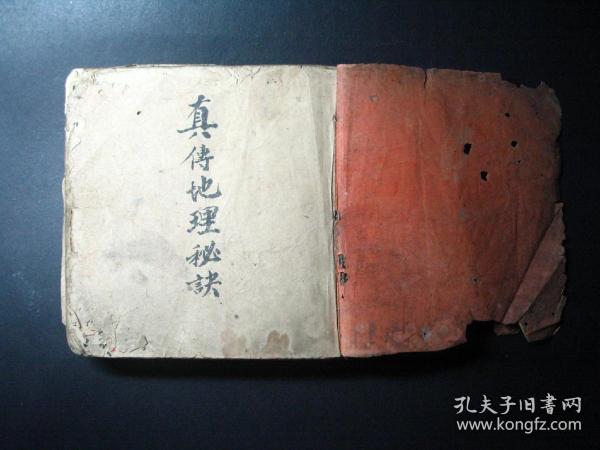 真傳地理秘訣
孔夫子旧書网
www.kongfz.com